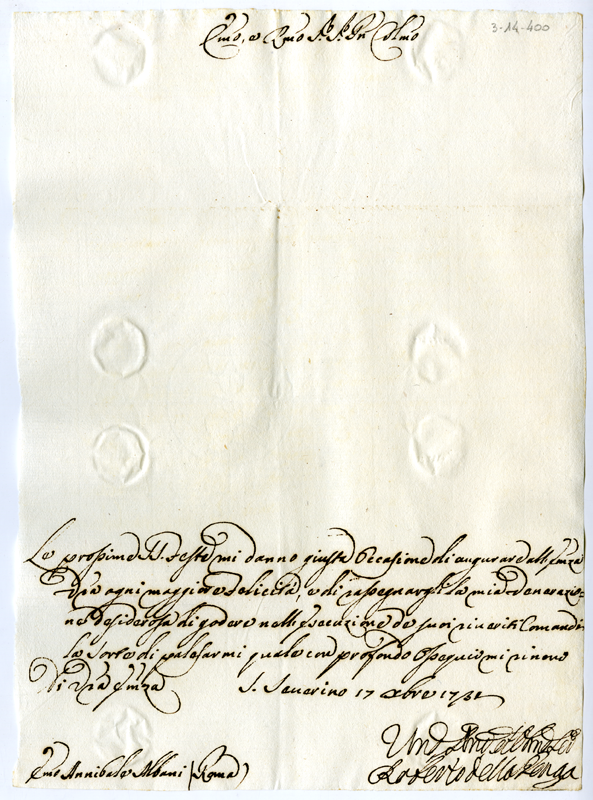 3-14-400
Emo, e Rmo Sr. Sr. Pn Colmo
Le prossime SS. Feste mi danno giusta Occasione di augurare all'Emza
Vra ogni maggiore Felicità, e di rassegnargli la mia Venerazio-
ne desiderosa di godere nell'Esecuzione de suoi riveriti Comandi
la sorte di palesarmi quale con profondo Ossequio mi rinovo
Di Vra Emza S. Severino 17 Xbre 1731
Emo Annibale Albani (Roma)
Roberto della Genga